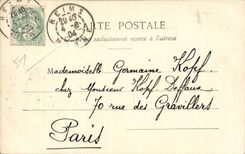 REIMS
REIMS
20 40
4-8
04
MARNE
CARTE POSTALE
exclusivement réservé à l'adresse
51
Mademoiselle Germaine Kopf
chez Monsieur Kopf Deffaux
70 rue des Gravilliers
Paris